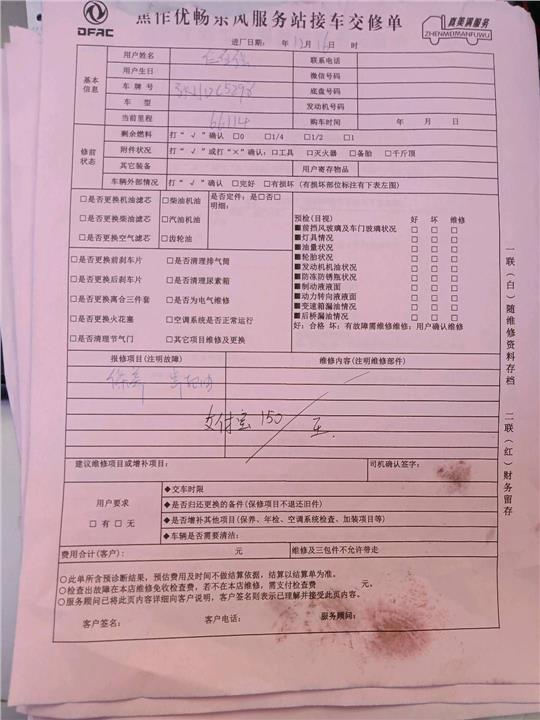 焦作优畅东风服务站接车交修单
DFAC
真美满服务
ZHENMEIMANFUWU
进厂日期: 年 12月 16日 时
基本信息
用户姓名
联系电话
用户生日
微信号码
车牌号
底盘号码
车型
发动机号码
当前里程 66114
购车时间 年 月 日
修前状态
剩余燃料 打“√”确认 □0 □1/4 □1/2 □1
附件状况 打“√”或打“×”确认: □工具 □灭火器 □备胎 □千斤顶
其它装备
用户寄存物品
车辆外部情况 打“√”确认 □完好 □有损坏 (有损坏部位标注有下表左图)
□是否更换机油滤芯 □柴油机油
□是否更换柴油滤芯 □汽油机油
□是否更换空气滤芯 □齿轮油
是否定件: 是□否□
明细:
□是否更换前刹车片 □是否清理排气筒
□是否更换后刹车片 □是否清理尿素箱
□是否更换离合三件套 □是否为电气维修
□是否更换火花塞 □空调系统是否正常运行
□是否清理节气门 □其它项目维修及更换
预检(目视) 好 坏 维修
■前挡风玻璃及车门玻璃状况 □ □ □
■灯具情况 □ □ □
■油量状况 □ □ □
■轮胎状况 □ □ □
■发动机机油状况 □ □ □
■防冻防锈瓶状况 □ □ □
■制动液液面 □ □ □
■动力转向液液面 □ □ □
■变速箱漏油情况 □ □ □
■后桥漏油情况 □ □ □
好: 合格 坏: 有故障需维修维修: 用户确认维修
报修项目(注明故障)
维修内容(注明维修部件)
保养
支付宝 150
王
建议维修项目或增补项目:
司机确认签字:
用户要求
□有 □无
◆交车时限
◆是否归还更换的备件(保修项目不退还旧件)
◆是否增补其他项目(保养、年检、空调系统检查、加装项目等)
◆车辆是否需要清洁:
费用合计(客户): 元
维修及三包件不允许带走
○此单所含预诊断结果, 预估费用及时间不做结算依据, 结算以结算单为准。
○检查出故障在本店维修免收检查费, 若不在本店维修, 需支付检查费 元。
○服务顾问已将此页内容详细向客户说明, 客户签名则表示已理解并接受此页内容。
客户签名: 客户电话: 服务顾问:
一联(白)随维修资料存档 二联(红)财务留存